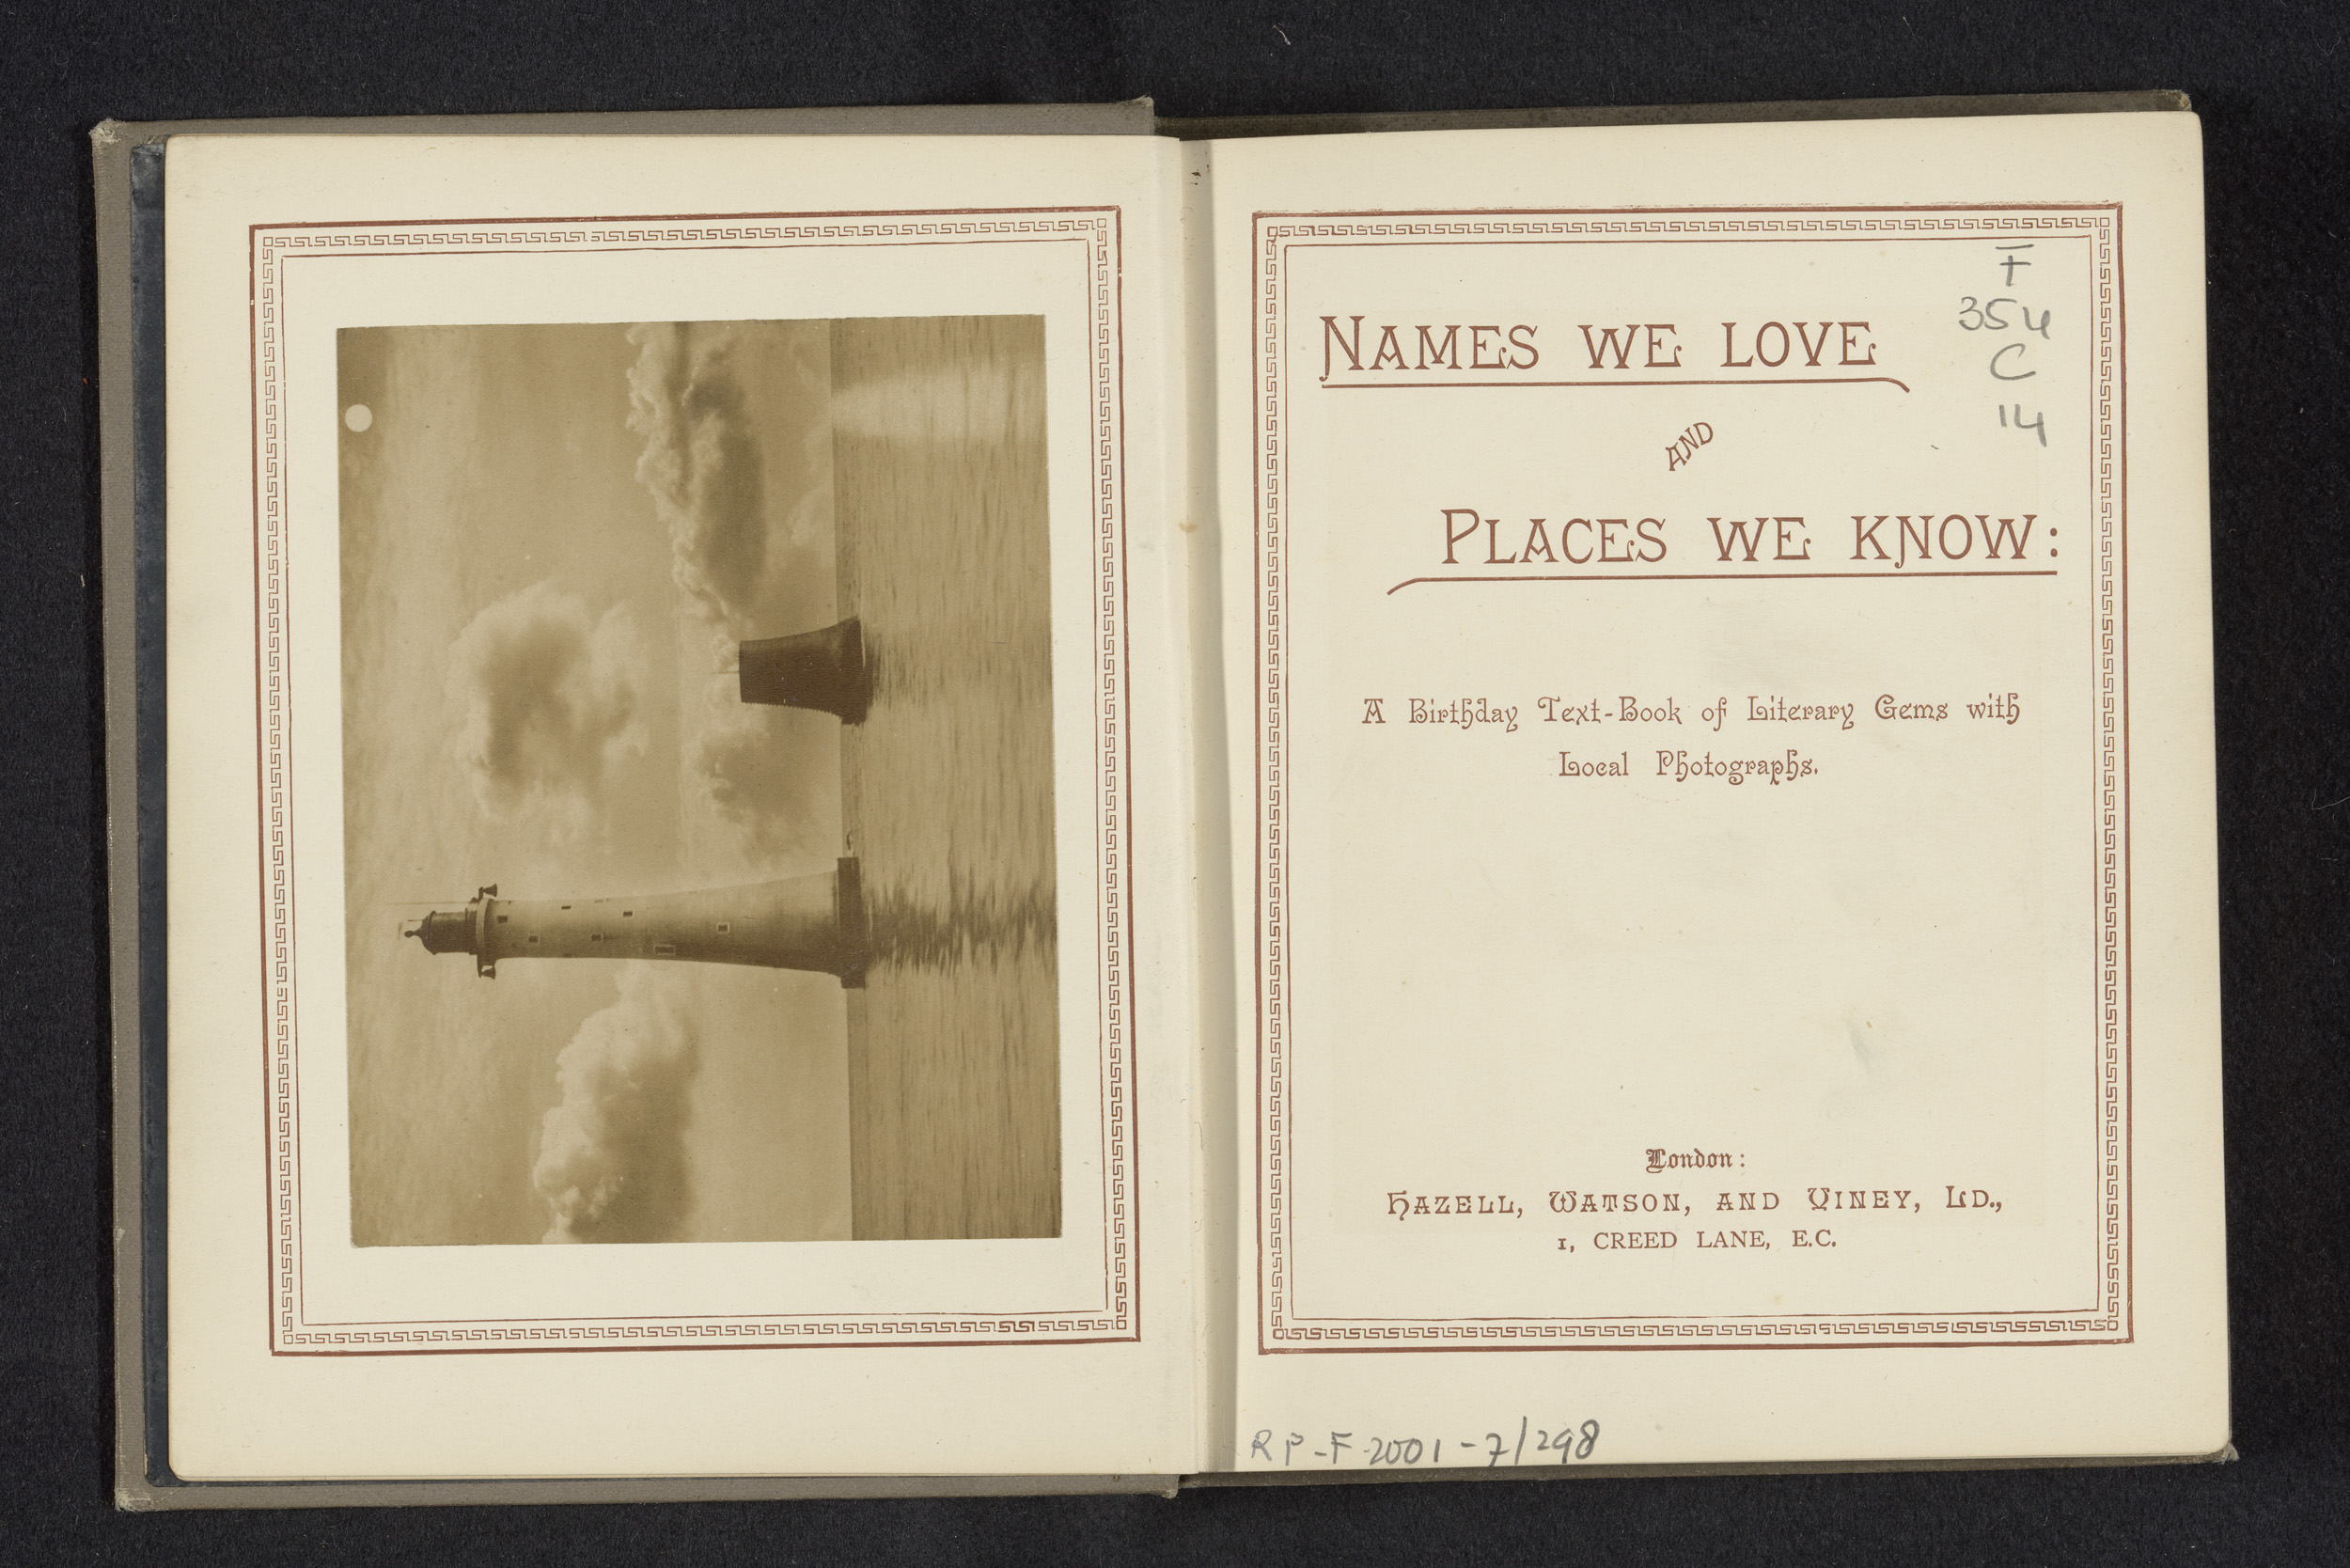 F
354
C
14
NAMES WE LOVE
AND
PLACES WE KNOW:
A Birthday Text-Book of Literary Gems with
Local Photographs.
London:
HAZELL, WATSON, AND VINEY, LD.,
1, CREED LANE, E.C.
RP-F-2001-7/298